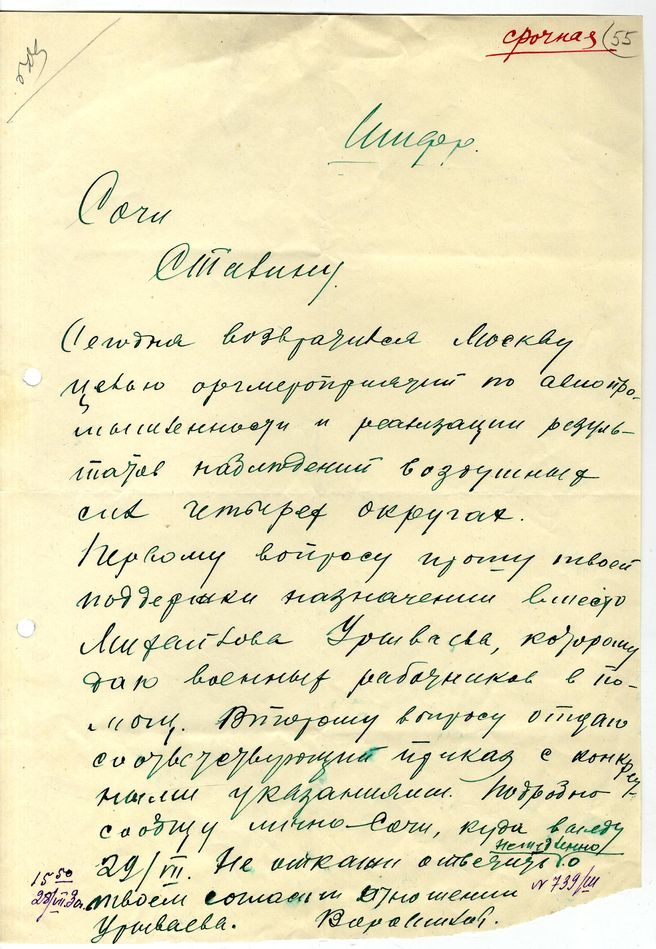 срочная (55
Шифр.
Сочи
Сталину.
Сегодня возвратился Москву
целью оргмероприятий по авиопро-
мышленности и реализации резуль-
татов наблюдений воздушных
сил четырех округах.
Первому вопросу прошу твоей
поддержки назначении вместо
Михайлова Урываева, которому
даю военных работников в по-
мощ. Второму вопросу отдаю
соответствующий приказ с конкрет-
ными указаниями. Подробно
сообщу лично Сочи, куда выеду
немедленно
29/VII. Не откажи ответить о
15 50
твоем согласии отношении
№ 739/ш
Урываева. Ворошилов.